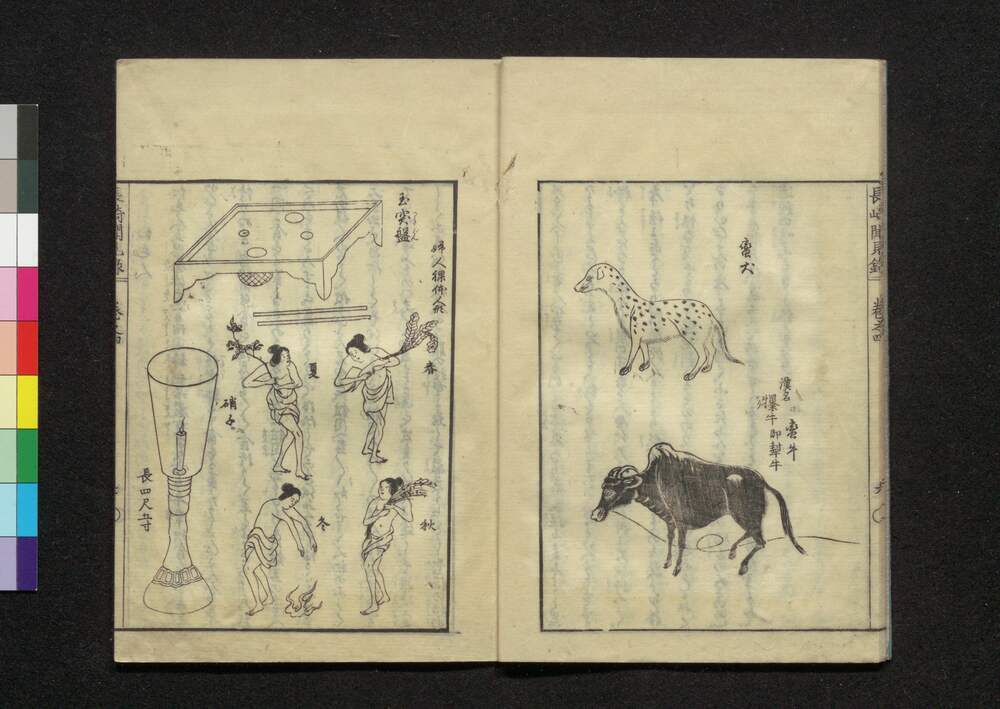 長崎聞見録
蛮犬
蛮牛
漢名
犦牛 即犎牛
玉突盤
婦人裸体人形
春
夏
秋
冬
硝子
長四尺五寸
長崎聞見録